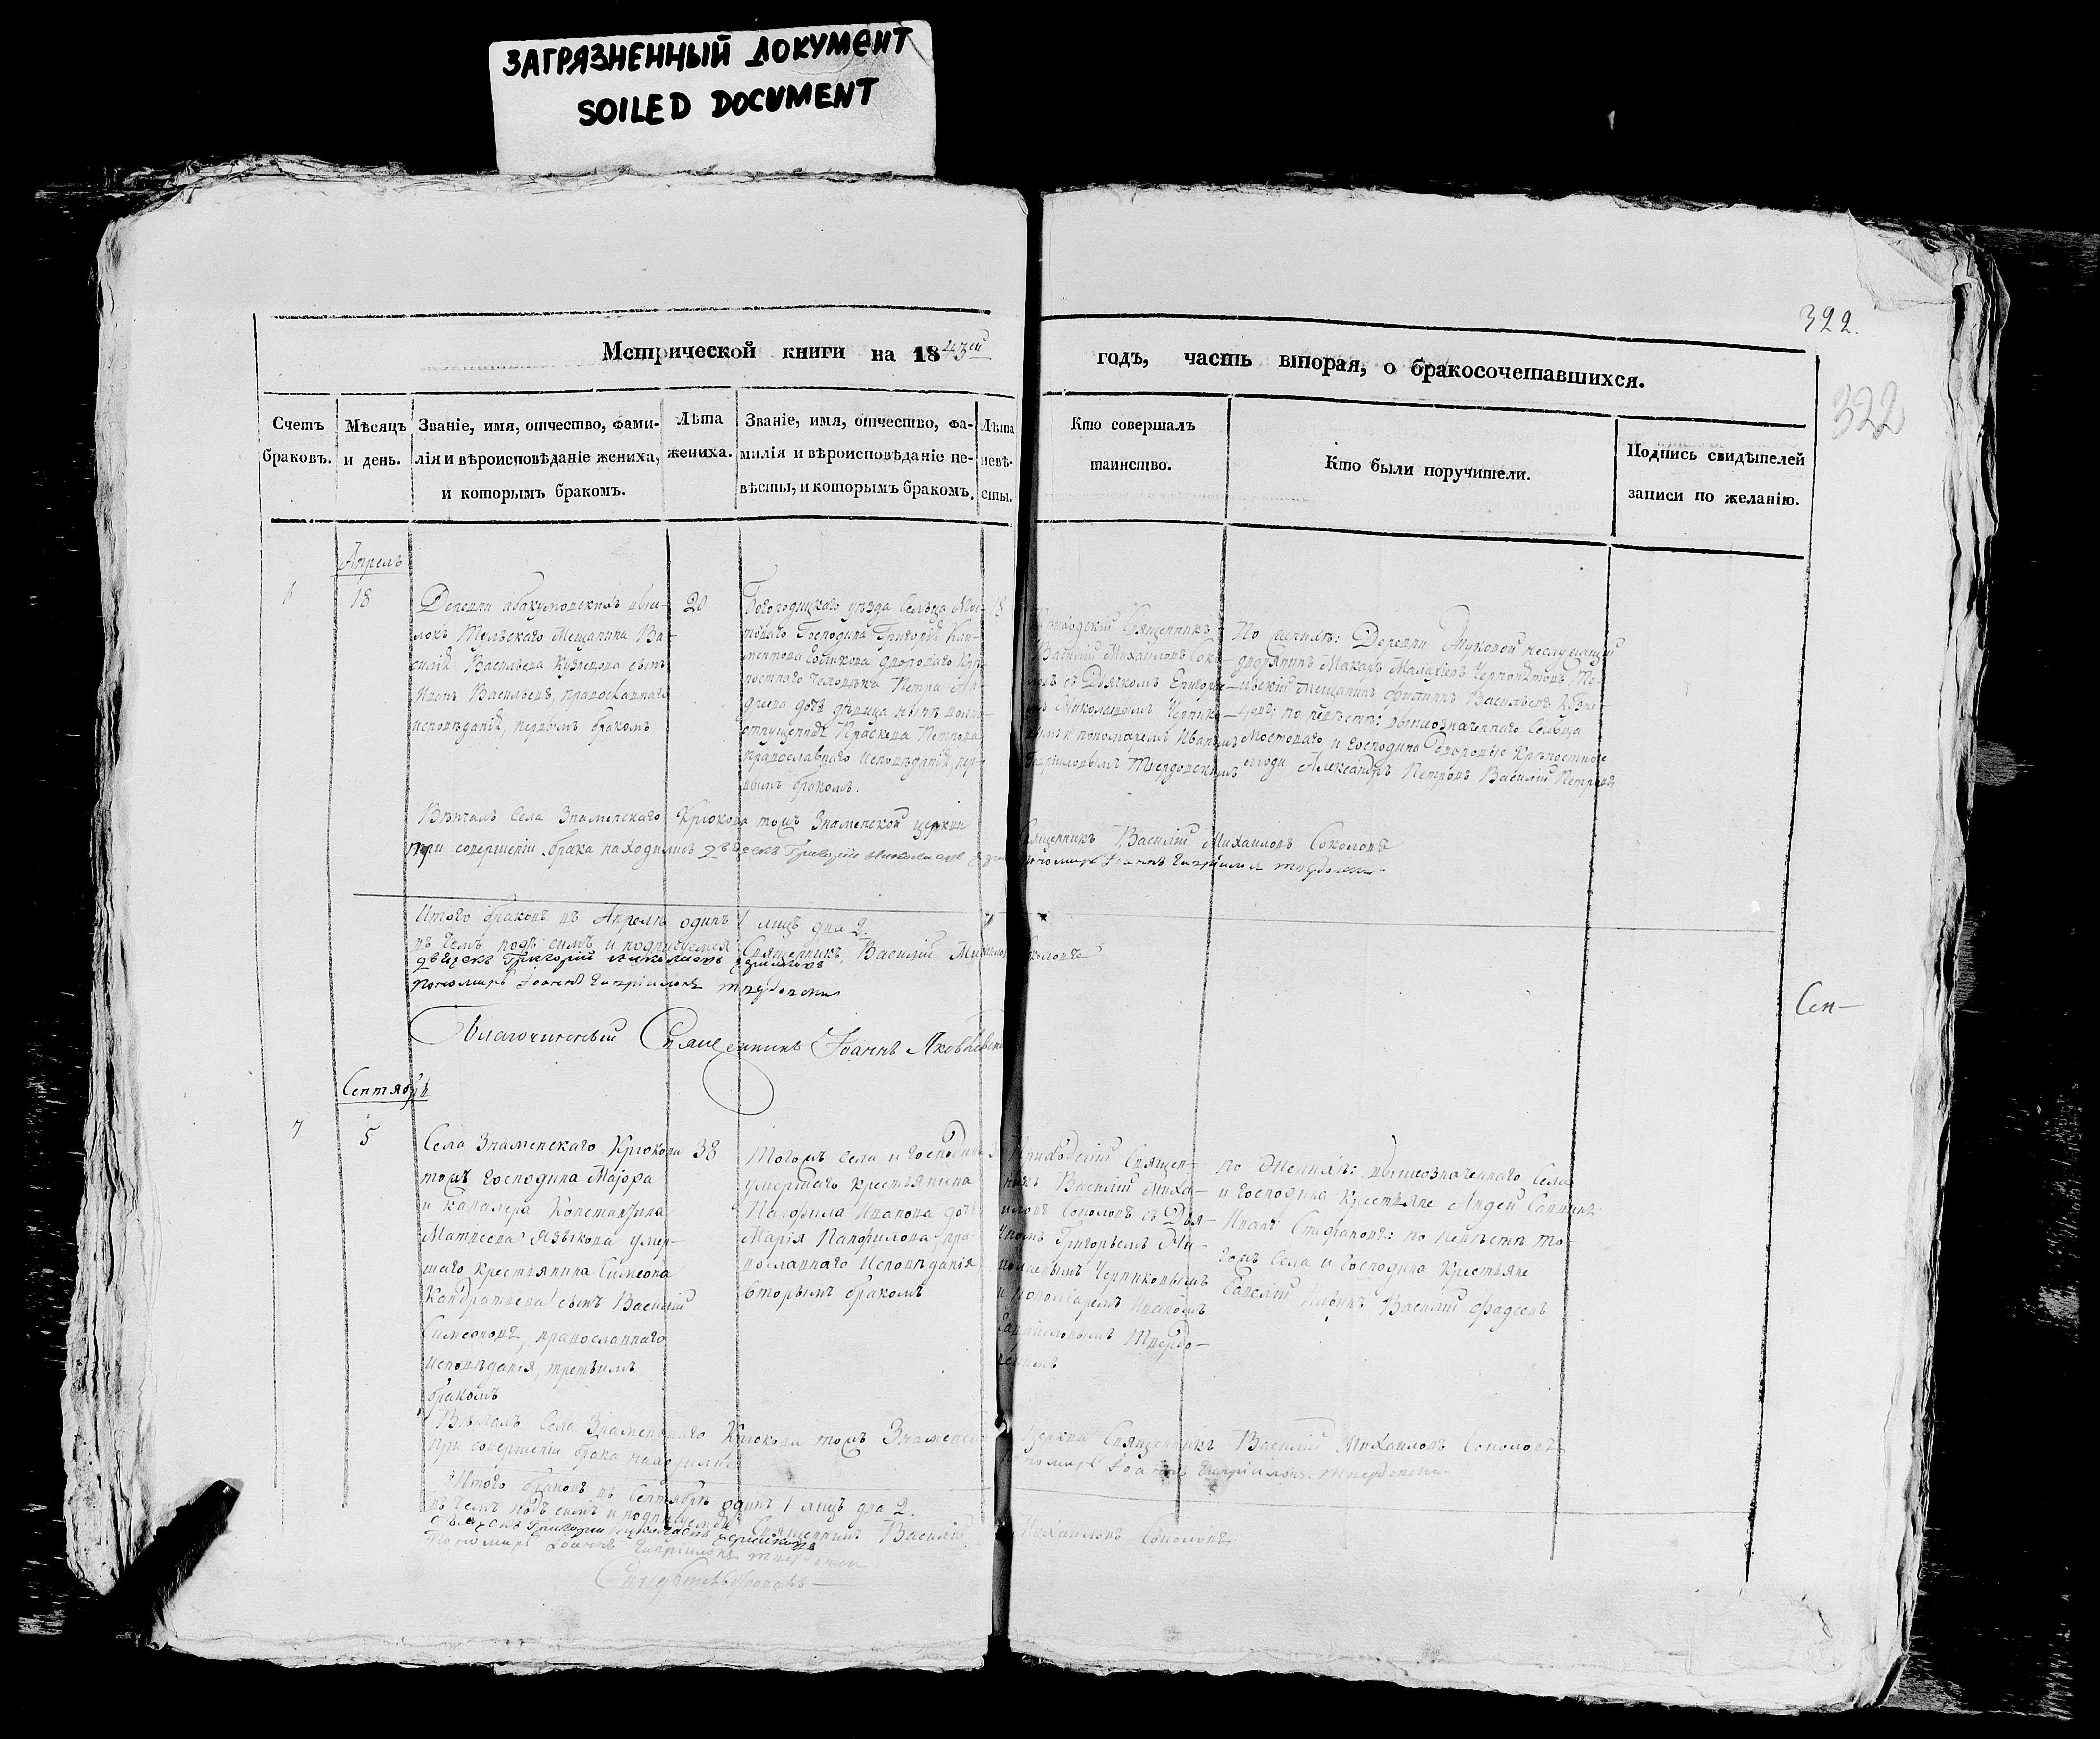 ЗАГРЯЗНЕННЫЙ ДОКУМЕНТ
SOILED DOCUMENT
322.
322
Метрической книги на 1843й
годъ, часть вторая, о бракосочетавшихся.
Счетъ
браковъ.
Мѣсяцъ
и день.
Званіе, имя, отчество, фами-
лія и вѣроисповѣданіе жениха,
и которымъ бракомъ.
Лѣта
жениха.
Званіе, имя, отчество, фа-
милія и вѣроисповѣданіе не-
вѣсты, и которымъ бракомъ.
Лѣта
невѣ-
сты.
Кто совершалъ
таинство.
Кто были поручители.
Подпись свидѣтелей
записи по желанію.
Апрель
18
Деревни абакумовскихъ высе-
локъ Тульскаго Мещанина Ва-
силія Васильева Кузнецова сынъ
Иванъ Васильевъ, православнаго
исповѣданія, первымъ бракомъ
20
Богородицкаго уѣзда Сельца Мос-
товаго Господина Григорія Кли-
ментова двороваго Крѣ-
постнаго человѣка Петра Ан-
дреева дочь дѣвица
отпущенная Праскева Петрова
православнаго исповѣданія, пер-
вымъ бракомъ.
18
Приходскій Священникъ
Василій Михайловъ Соко-
ловъ съ Дьячкомъ Григорье-
мъ Николаевымъ Чернико-
вымъ и пономаремъ Иваномъ
Гавріиловымъ Твердовскимъ
По женихѣ: Деревни неслужащій
дворянинъ Макаръ Малаховъ Ту-
льскій Мещанинъ Васильевъ Кузне-
цовъ; по невѣстѣ: вышеозначеннаго Сельца
Мостоваго и господина Дворовые Крѣпостные
люди Александръ Петровъ Василій Петровъ
Вѣнчалъ Села Знаменскаго Крюкова тожъ Знаменской церкви Священникъ Василій Михайловъ Соколовъ
при совершеніи брака находились Дьячекъ Григорій Николаевъ пономарь Іоаннъ Гавріиловъ Твердовскій
Итого браковъ въ Апрелѣ одинъ 1 лицъ два 2.
въ чемъ подъ симъ и подписуемся Священникъ Василій Михайловъ Соколовъ
Дьячекъ Григорій Николаевъ Черниковъ
пономарь Іоаннъ Гавріиловъ Твердовскій
Благочинный Священникъ Іоаннъ Яковлевскій
Сен-
Сентябрь
7
5
Села Знаменскаго Крюкова
тожъ Господина Маіора
и Кавалера Константина
Матвеева Языкова умер-
шаго крестьянина Симеона
Кондратьева сынъ Василій
Симеоновъ, православнаго
исповѣданія, третьимъ
бракомъ
38
Тогожъ села и Господина
умершаго крестьянина
Панфила Иванова дочь
Марія Панфилова, пра-
вославнаго Исповѣданія
вторымъ бракомъ
Приходскій Священ-
никъ Василій Миха-
йловъ Соколовъ съ Дья-
чкомъ Григорьемъ Ни-
колаевымъ Черниковымъ
и пономаремъ Иваномъ
Гавріиловымъ Твердо-
вскимъ
по женихѣ: вышеозначеннаго Села
и Господина Крестьяне Саввинъ
Иванъ Стефановъ: по невѣстѣ то-
гожъ Села и Господина Крестьяне
Савелій Василій Фадеевъ
Вѣнчалъ Села Знаменскаго Крюкова тожъ Знаменской Церкви Священникъ Василій Михайловъ Соколовъ
при совершеніи брака находились пономарь Іоаннъ Гавріиловъ Твердовскій
Итого браковъ въ Сентябрѣ одинъ 1 лицъ два 2.
въ чемъ подъ симъ и подписуемся Священникъ Василій Михайловъ Соколовъ
Дьячекъ Григорій Николаевъ Черниковъ
Пономарь Іоаннъ Гавріиловъ Твердовскій